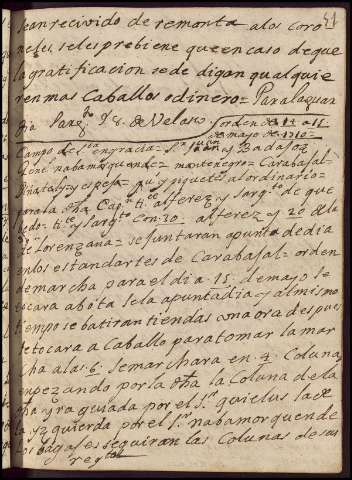 51
sean recivido de remonta a los coro
neles, se les prebiene que en caso de que
la gratificacion se de digan qual quie
ren mas Caballos o dinero = Para la guar
dia Sarg.to y 8. de Velasco orden de 14 a 15
de mayo de 1710 =
Campo de S.ta engracia = S.n y Badajoz
Gene. nabamorquende = montenegro = Carabajal =
y espejo = y piquetes al ordinario =
para la dha Cap.n ti.te alferez y sarg.to de que
bedo = ti.te y sarg.to con 30 alferez y 20 de la
R.n de Lorenzana = se juntaran a punta de dia
en los estandartes de Carabajal = orden
de marcha para el dia 15 de mayo se
tocara a bota sela a punta dia y al mismo
tiempo se batiran tiendas una ora despues
se tocara a Caballo para tomar la mar
cha a las 6. se marchara en 4 Colunas
enpezando por la dha la Coluna de la
dha y ra guiada por el S.r quielus la de
la yzquierda por el S.r nabamorquende
los bagajes seguiran las Colunas de sus
reg.tos